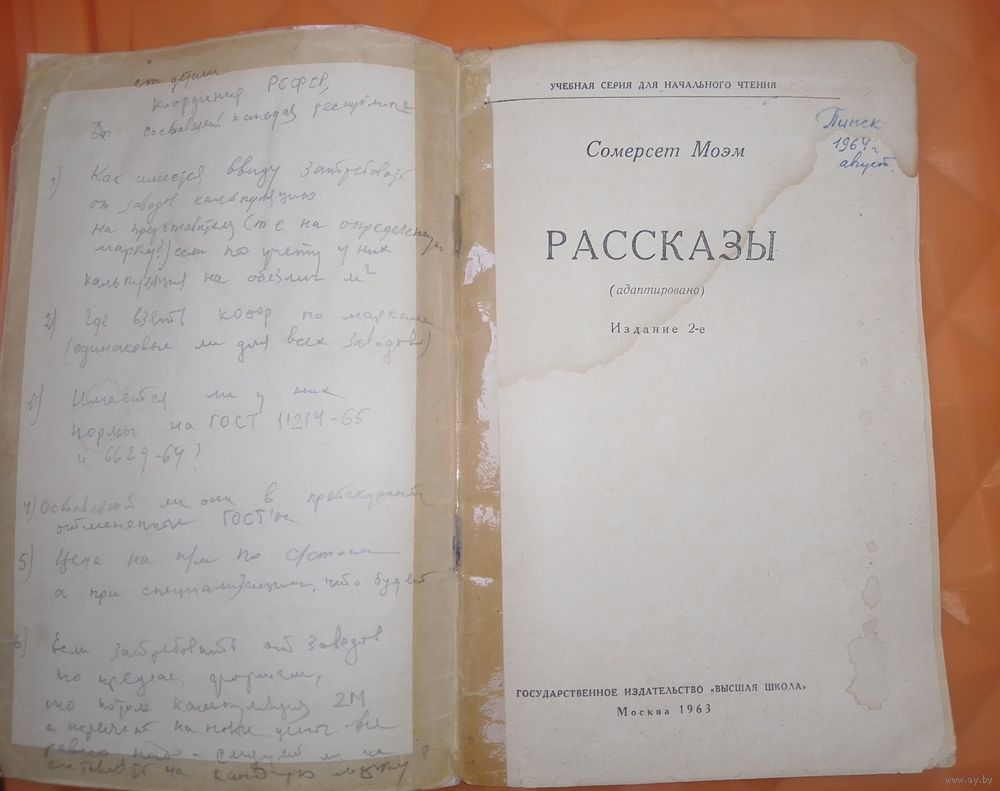 ст детали
координия РСФСР,
составляей каждая республика
1) Как имеется ввиду затребовать
от заводов калькуляцию
на представителя (т е на определенную
марку?) если по учету у них
калькуляция на обезлич м²
2) Где взять коэф по маркам
(одинаковые ли для всех заводов)
3) Имеются ли у них
нормы на ГОСТ 11214-65
и 6629-64?
4) Оставляют ли они в прейскуранте
отмененные ГОСТ'ы
5) Цена на п/м по
а при специализации, что будет
6) Если затребовать от заводов
по предлаг. формам,
то потом калькуляция 2М
на новые цены все
равно надо - сможем ли
составлять на каждую марку?
УЧЕБНАЯ СЕРИЯ ДЛЯ НАЧАЛЬНОГО ЧТЕНИЯ
Пинск
1964 г
август.
Сомерсет Моэм
РАССКАЗЫ
(адаптировано)
Издание 2-е
ГОСУДАРСТВЕННОЕ ИЗДАТЕЛЬСТВО «ВЫСШАЯ ШКОЛА»
Москва 1963
www.ay.by